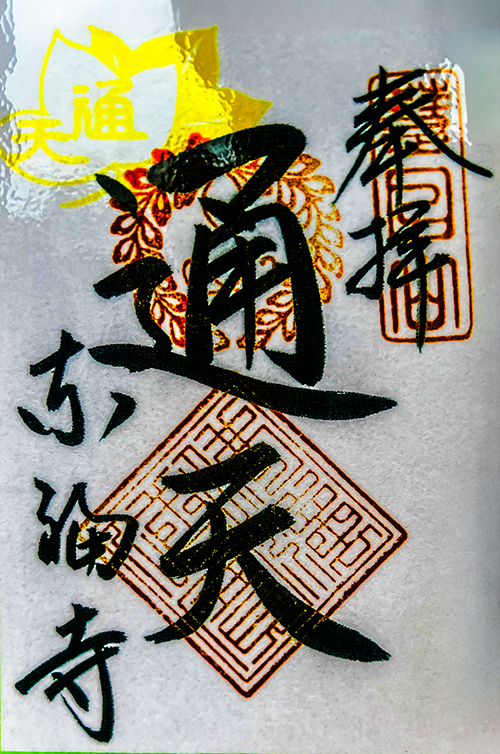 奉拝
通天
東福寺
通天